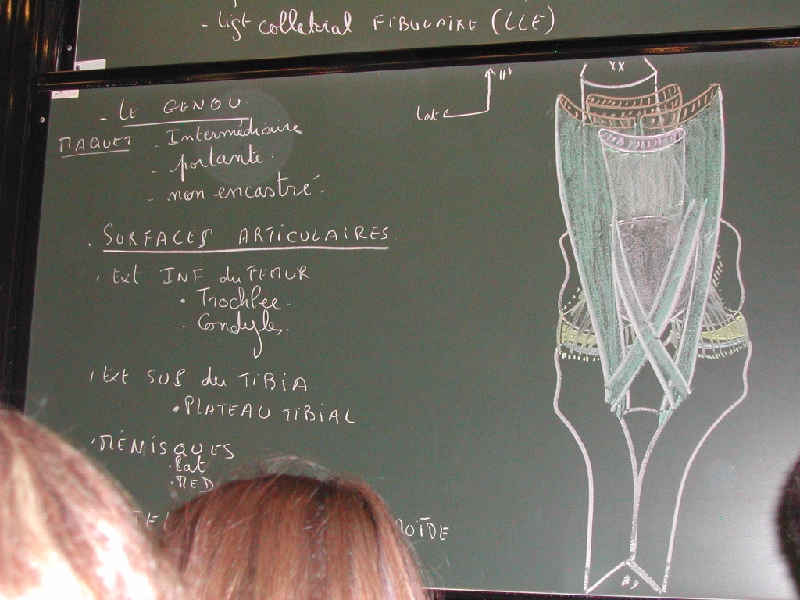 - Ligt collatéral FIBULAIRE (LLE)
- LE GENOU
MAQUET - Intermédiaire
- portante
- non encastré
. SURFACES ARTICULAIRES
. Ext INF du FEMUR
. Trochlée
. Condyles
. Ext SUP du TIBIA
. PLATEAU TIBIAL
. MÉNISQUES
. Lat
. MED
OÏDE
Lat
xx